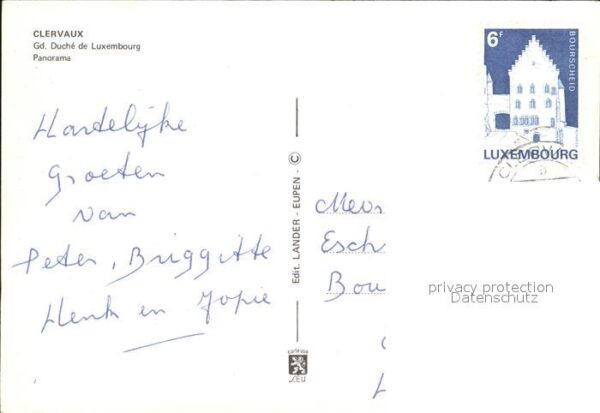 CLERVAUX
Gd. Duché de Luxembourg
Panorama
6F
BOURSCHEID
LUXEMBOURG
Hartelijke
Groeten
van
Peter, Briggitte
Henk en Jopie
Edit. LANDER - EUPEN - C
Mevr
Esch
Bou
privacy protection
Datenschutz